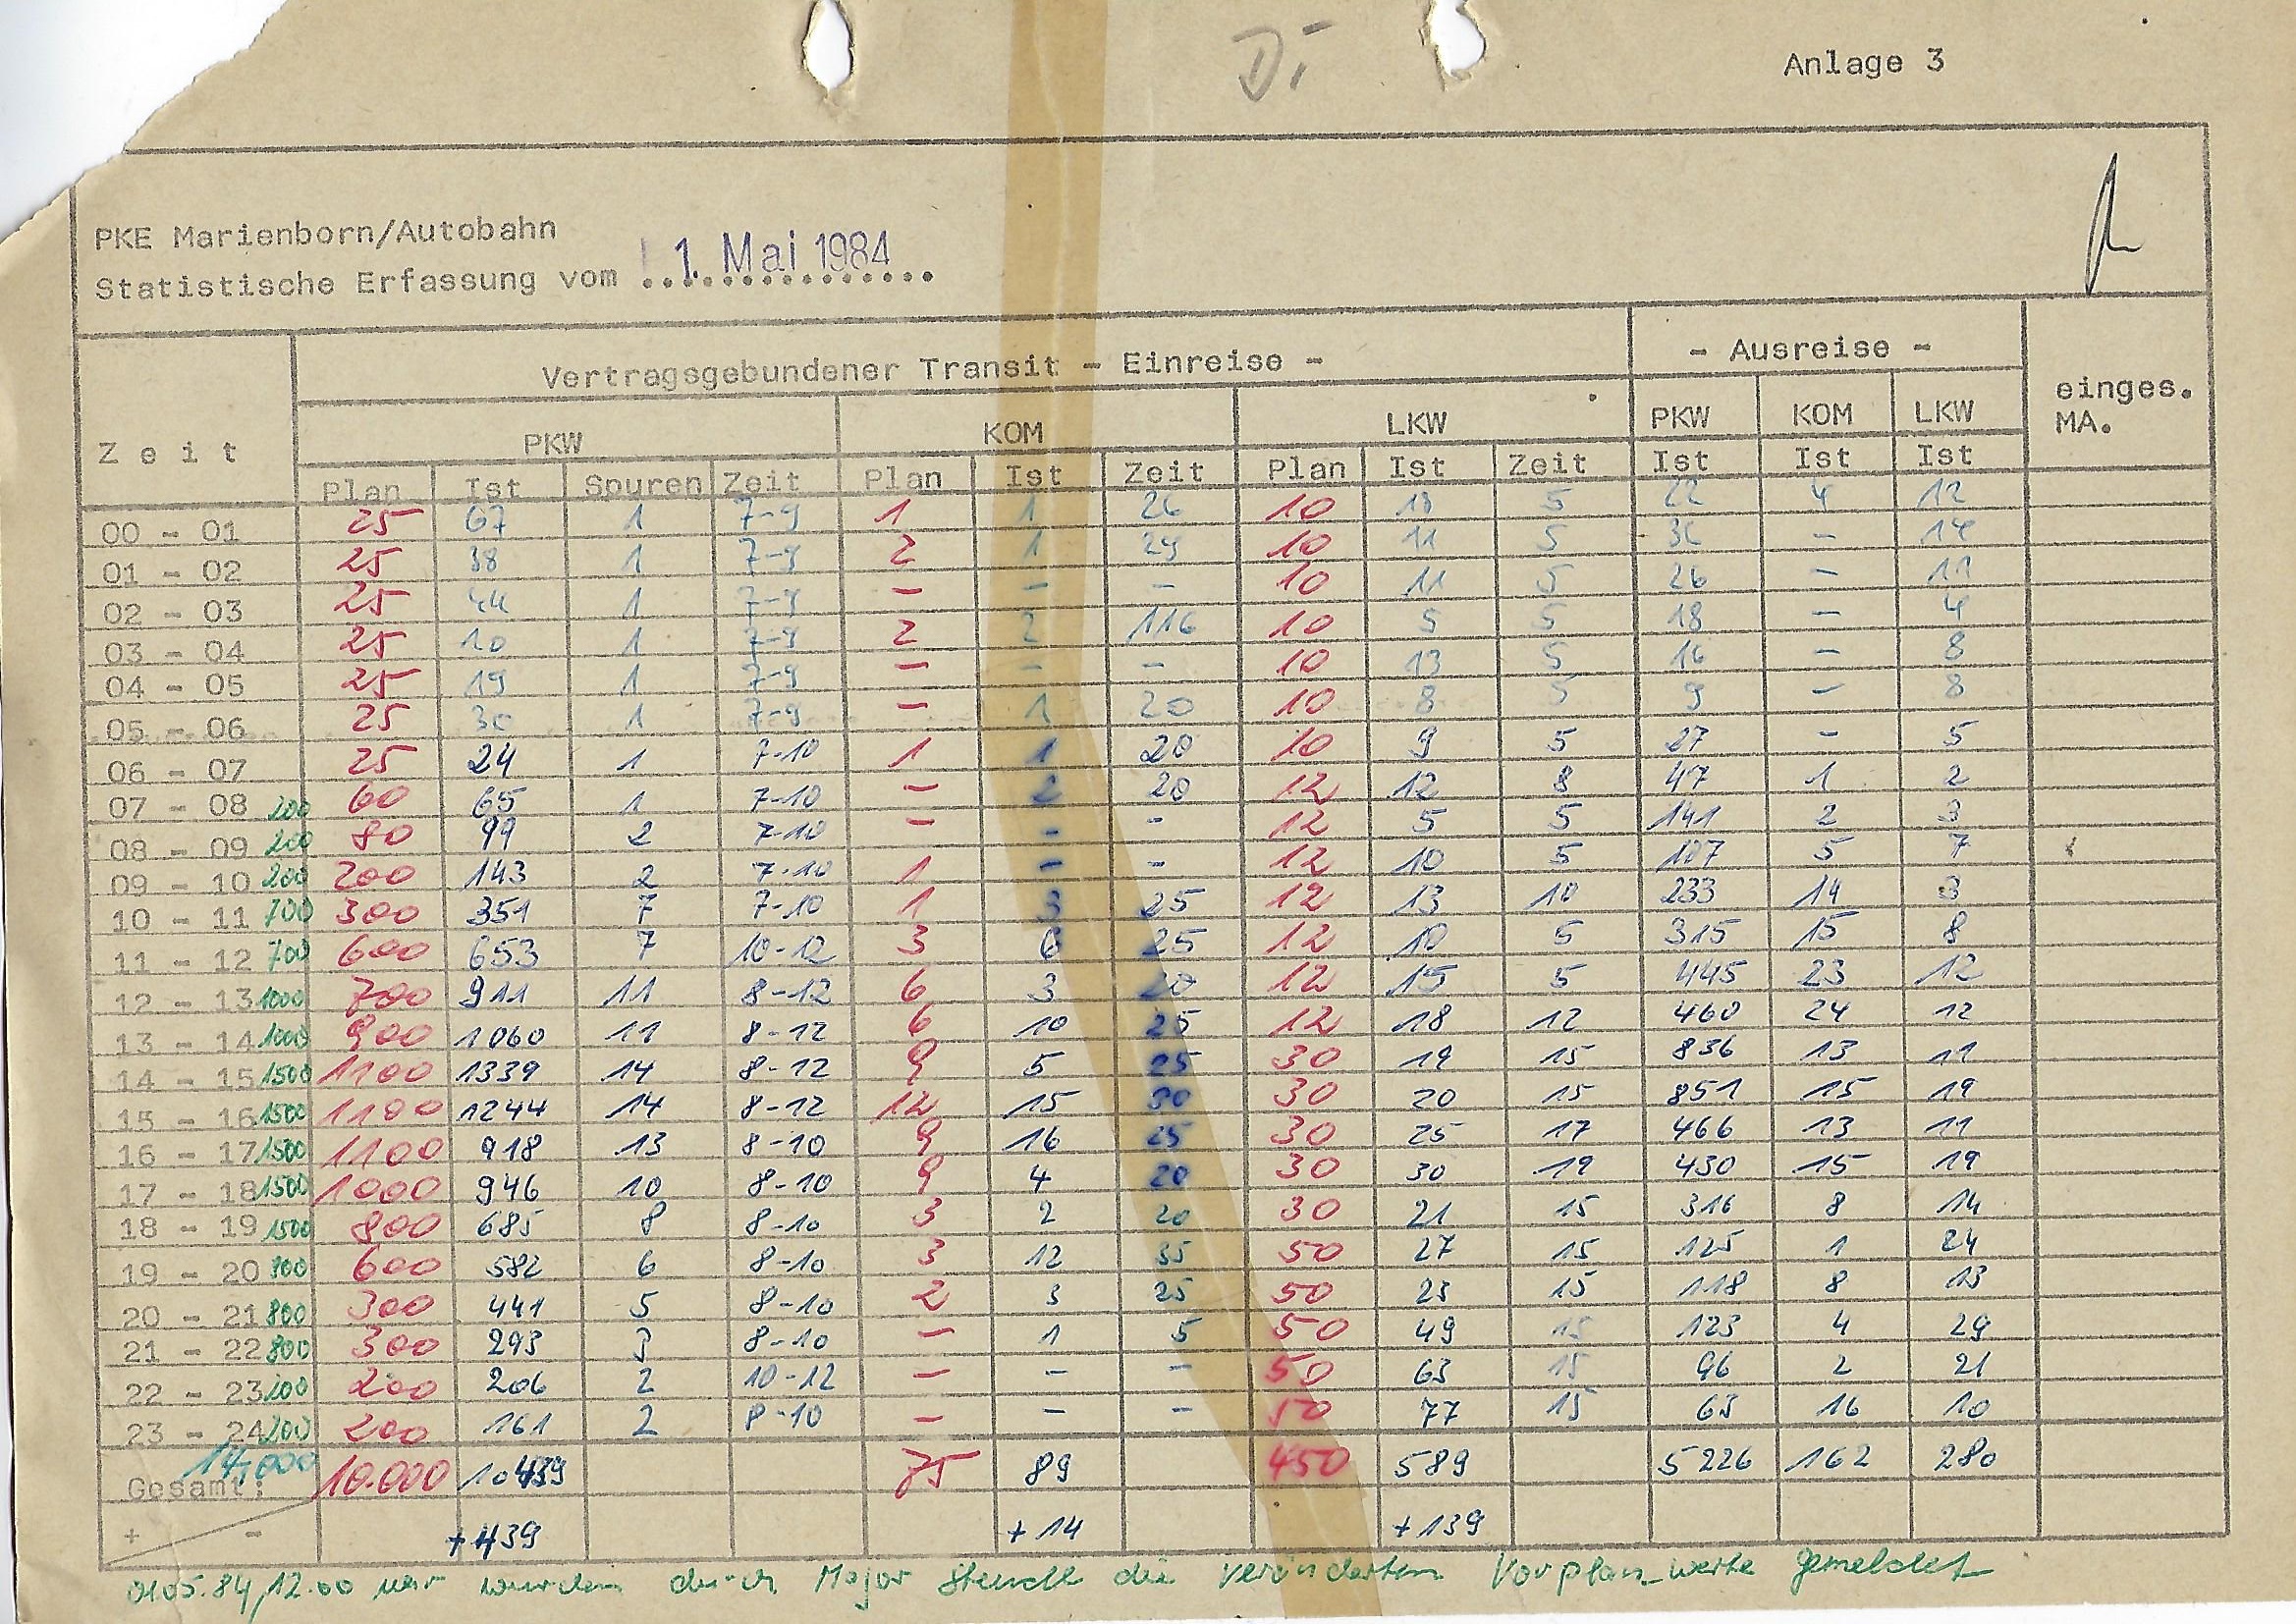 Di
Anlage 3
PKE Marienborn/Autobahn
Statistische Erfassung vom 1. Mai 1984
Vertragsgebundener Transit - Einreise - - Ausreise -
Zeit PKW KOM LKW PKW KOM LKW einges. MA.
Plan Ist Spuren Zeit Plan Ist Zeit Plan Ist Zeit Ist Ist Ist
00 - 01 25 67 1 7-9 1 1 26 10 18 5 22 4 12
01 - 02 25 38 1 7-9 2 1 29 10 11 5 36 - 14
02 - 03 25 44 1 7-9 - - - 10 11 5 26 - 11
03 - 04 25 10 1 7-9 2 2 116 10 5 5 18 - 4
04 - 05 25 19 1 7-9 - - - 10 13 5 16 - 8
05 - 06 25 30 1 7-9 - 1 20 10 8 5 9 - 8
06 - 07 25 24 1 7-10 1 1 20 10 9 5 27 - 5
07 - 08 200 60 65 1 7-10 - 2 20 12 12 8 47 1 2
08 - 09 200 80 99 2 7-10 - - - 12 5 5 141 2 3
09 - 10 200 200 143 2 7-10 1 - - 12 10 5 107 5 7
10 - 11 700 300 351 7 7-10 1 3 25 12 13 10 233 14 3
11 - 12 700 600 653 7 10-12 3 6 25 12 10 5 315 15 8
12 - 13 1000 700 911 11 8-12 6 3 20 12 15 5 445 23 12
13 - 14 1000 900 1060 11 8-12 6 10 25 12 18 12 460 24 12
14 - 15 1500 1100 1339 14 8-12 9 5 25 30 19 15 836 13 11
15 - 16 1500 1100 1244 14 8-12 12 15 30 30 20 15 851 15 19
16 - 17 1500 1100 918 13 8-10 9 16 25 30 25 17 466 13 11
17 - 18 1500 1000 946 10 8-10 9 4 20 30 30 19 430 15 19
18 - 19 1500 800 685 8 8-10 3 2 20 30 21 15 316 8 14
19 - 20 800 600 582 6 8-10 3 12 35 50 27 15 125 1 24
20 - 21 800 300 441 5 8-10 2 3 25 50 23 15 118 8 13
21 - 22 800 300 293 3 8-10 - 1 5 50 49 15 123 4 29
22 - 23 200 200 206 2 10-12 - - - 50 63 15 96 2 21
23 - 24 200 200 161 2 8-10 - - - 50 77 15 63 16 10
Gesamt: 14,000 10.000 10439 75 89 450 589 5226 162 280
+ - +439 +14 +139
01.05.84, 12.00 Uhr wurden durch Major die veränderten Vorplan-werte gemeldet